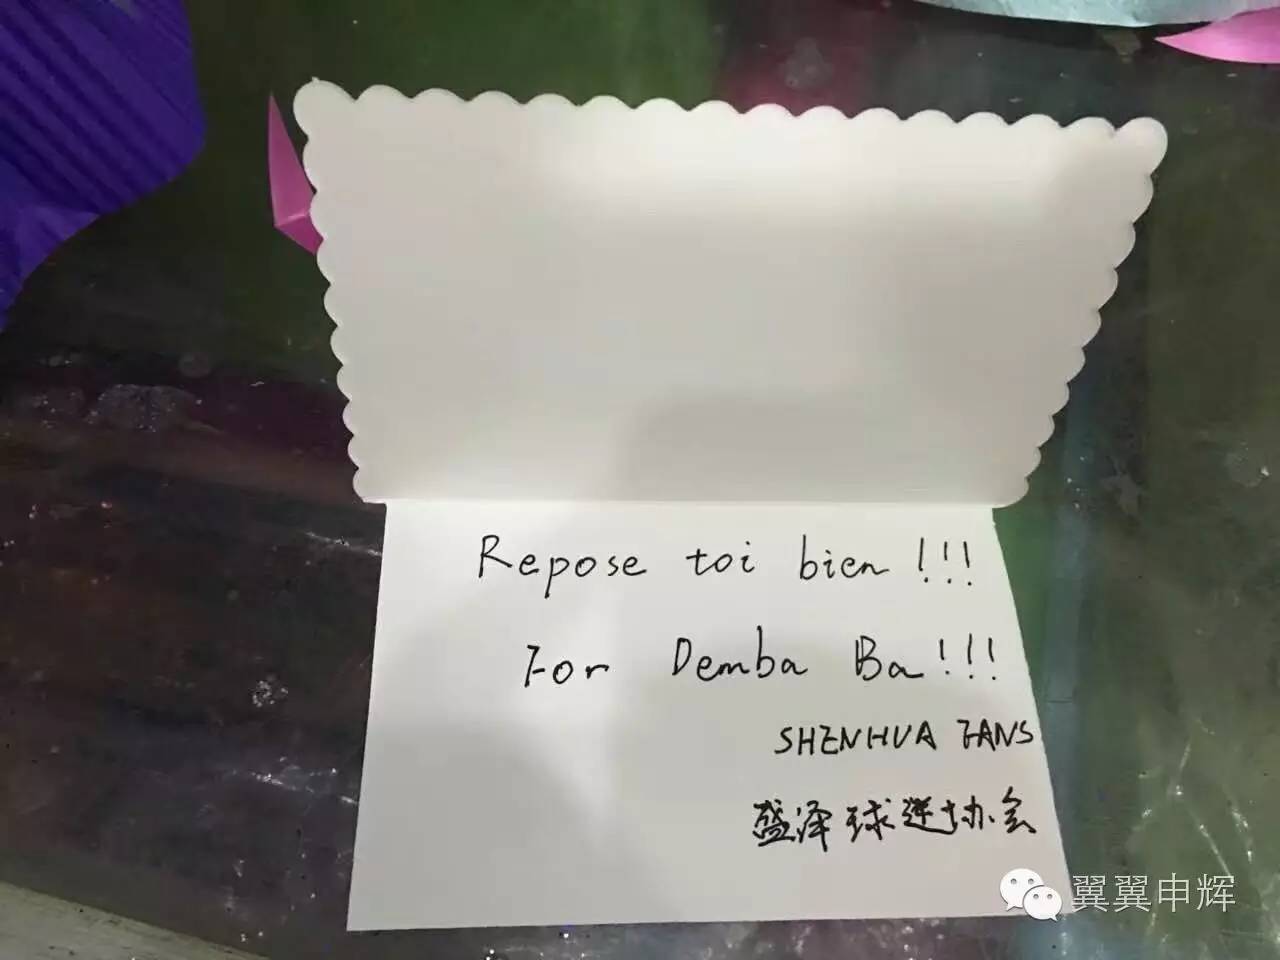 Repose toi bien!!!
For Demba Ba!!!
SHENHUA FANS
盛泽球迷协会
翼翼申辉